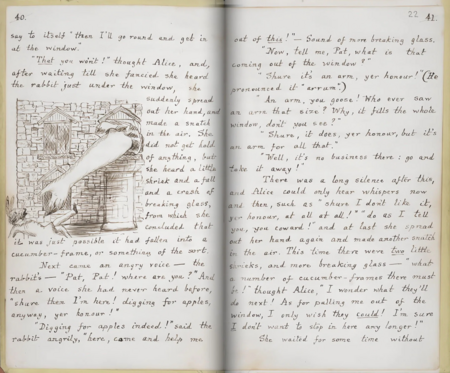 40.
say to itself "then I'll go round and get in
at the window."
"That you won't!" thought Alice, and,
after waiting till she fancied she heard
the rabbit just under the window, she
suddenly spread
out her hand, and
made a snatch
in the air. She
did not get hold
of anything, but
she heard a little
shriek and a fall
and a crash of
breaking glass,
from which she
concluded that
it was just possible it had fallen into a
cucumber-frame, or something of the sort.
Next came an angry voice — the
rabbit's — "Pat, Pat! where are you?" And
then a voice she had never heard before,
"shure then I'm here! digging for apples,
anyway, yer honour!"
"Digging for apples indeed!" said the
rabbit angrily, "here, come and help me
22
41.
out of this!" — Sound of more breaking glass.
"Now, tell me, Pat, what is that
coming out of the window?"
"Shure it's an arm, yer honour!" (He
pronounced it "arrum".)
"An arm, you goose! Who ever saw
an arm that size? Why, it fills the whole
window, don't you see?"
"Shure, it does, yer honour, but it's
an arm for all that."
"Well, it's no business there: go and
take it away!"
There was a long silence after this,
and Alice could only hear whispers now
and then, such as "shure I don't like it,
yer honour, at all at all!" "do as I tell
you, you coward!" and at last she spread
out her hand again and made another snatch
in the air. This time there were two little
shrieks, and more breaking glass — "what
a number of cucumber-frames there must
be!" thought Alice, "I wonder what they'll
do next! As for pulling me out of the
window, I only wish they could! I'm sure
I don't want to stop in here any longer!"
She waited for some time without